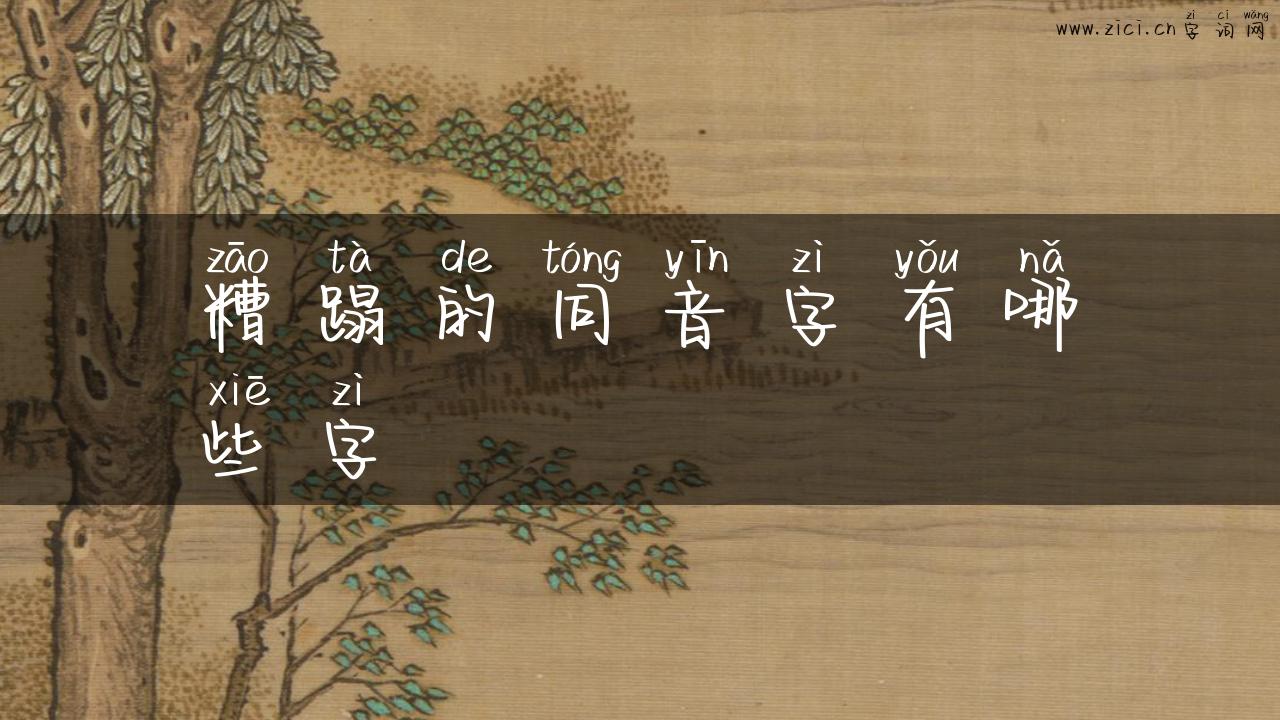 zì cí wǎng
www.zici.cn 字词网
zāo tà de tóng yīn zì yǒu nǎ
糟蹋的同音字有哪
xiē zì
些字